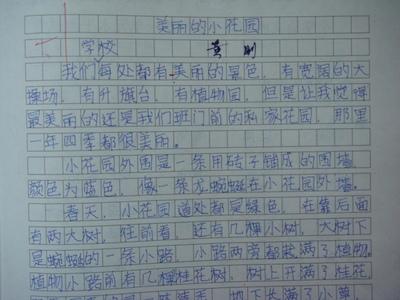 美丽的小花园
学校 黄刚
我们每处都有美丽的景色。有宽阔的大
操场，有升旗台，有植物园，但是让我觉得
最美丽的还是我们班门前的私家花园。那里
一年四季都很美丽。
小花园外围是一条用砖子铺成的围墙
颜色为蓝色，像一条龙蜿蜒在小花园外墙。
春天，小花园道处都是绿色，在靠后面
有两大树，往前看，还有几棵小树，大树下
是蜿蜒的一条小路。小路两旁都栽满了植物。
植物小路前有几棵桂花树，树上开满了桂花，